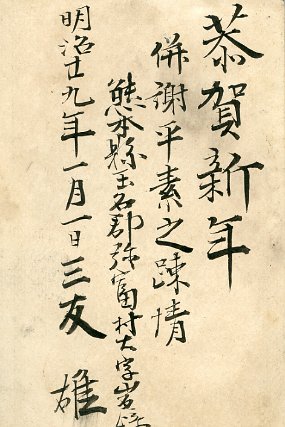 恭賀新年
併謝平素之疎情
熊本縣玉名郡弥富村大字岩
明治廿九年一月一日三友雄